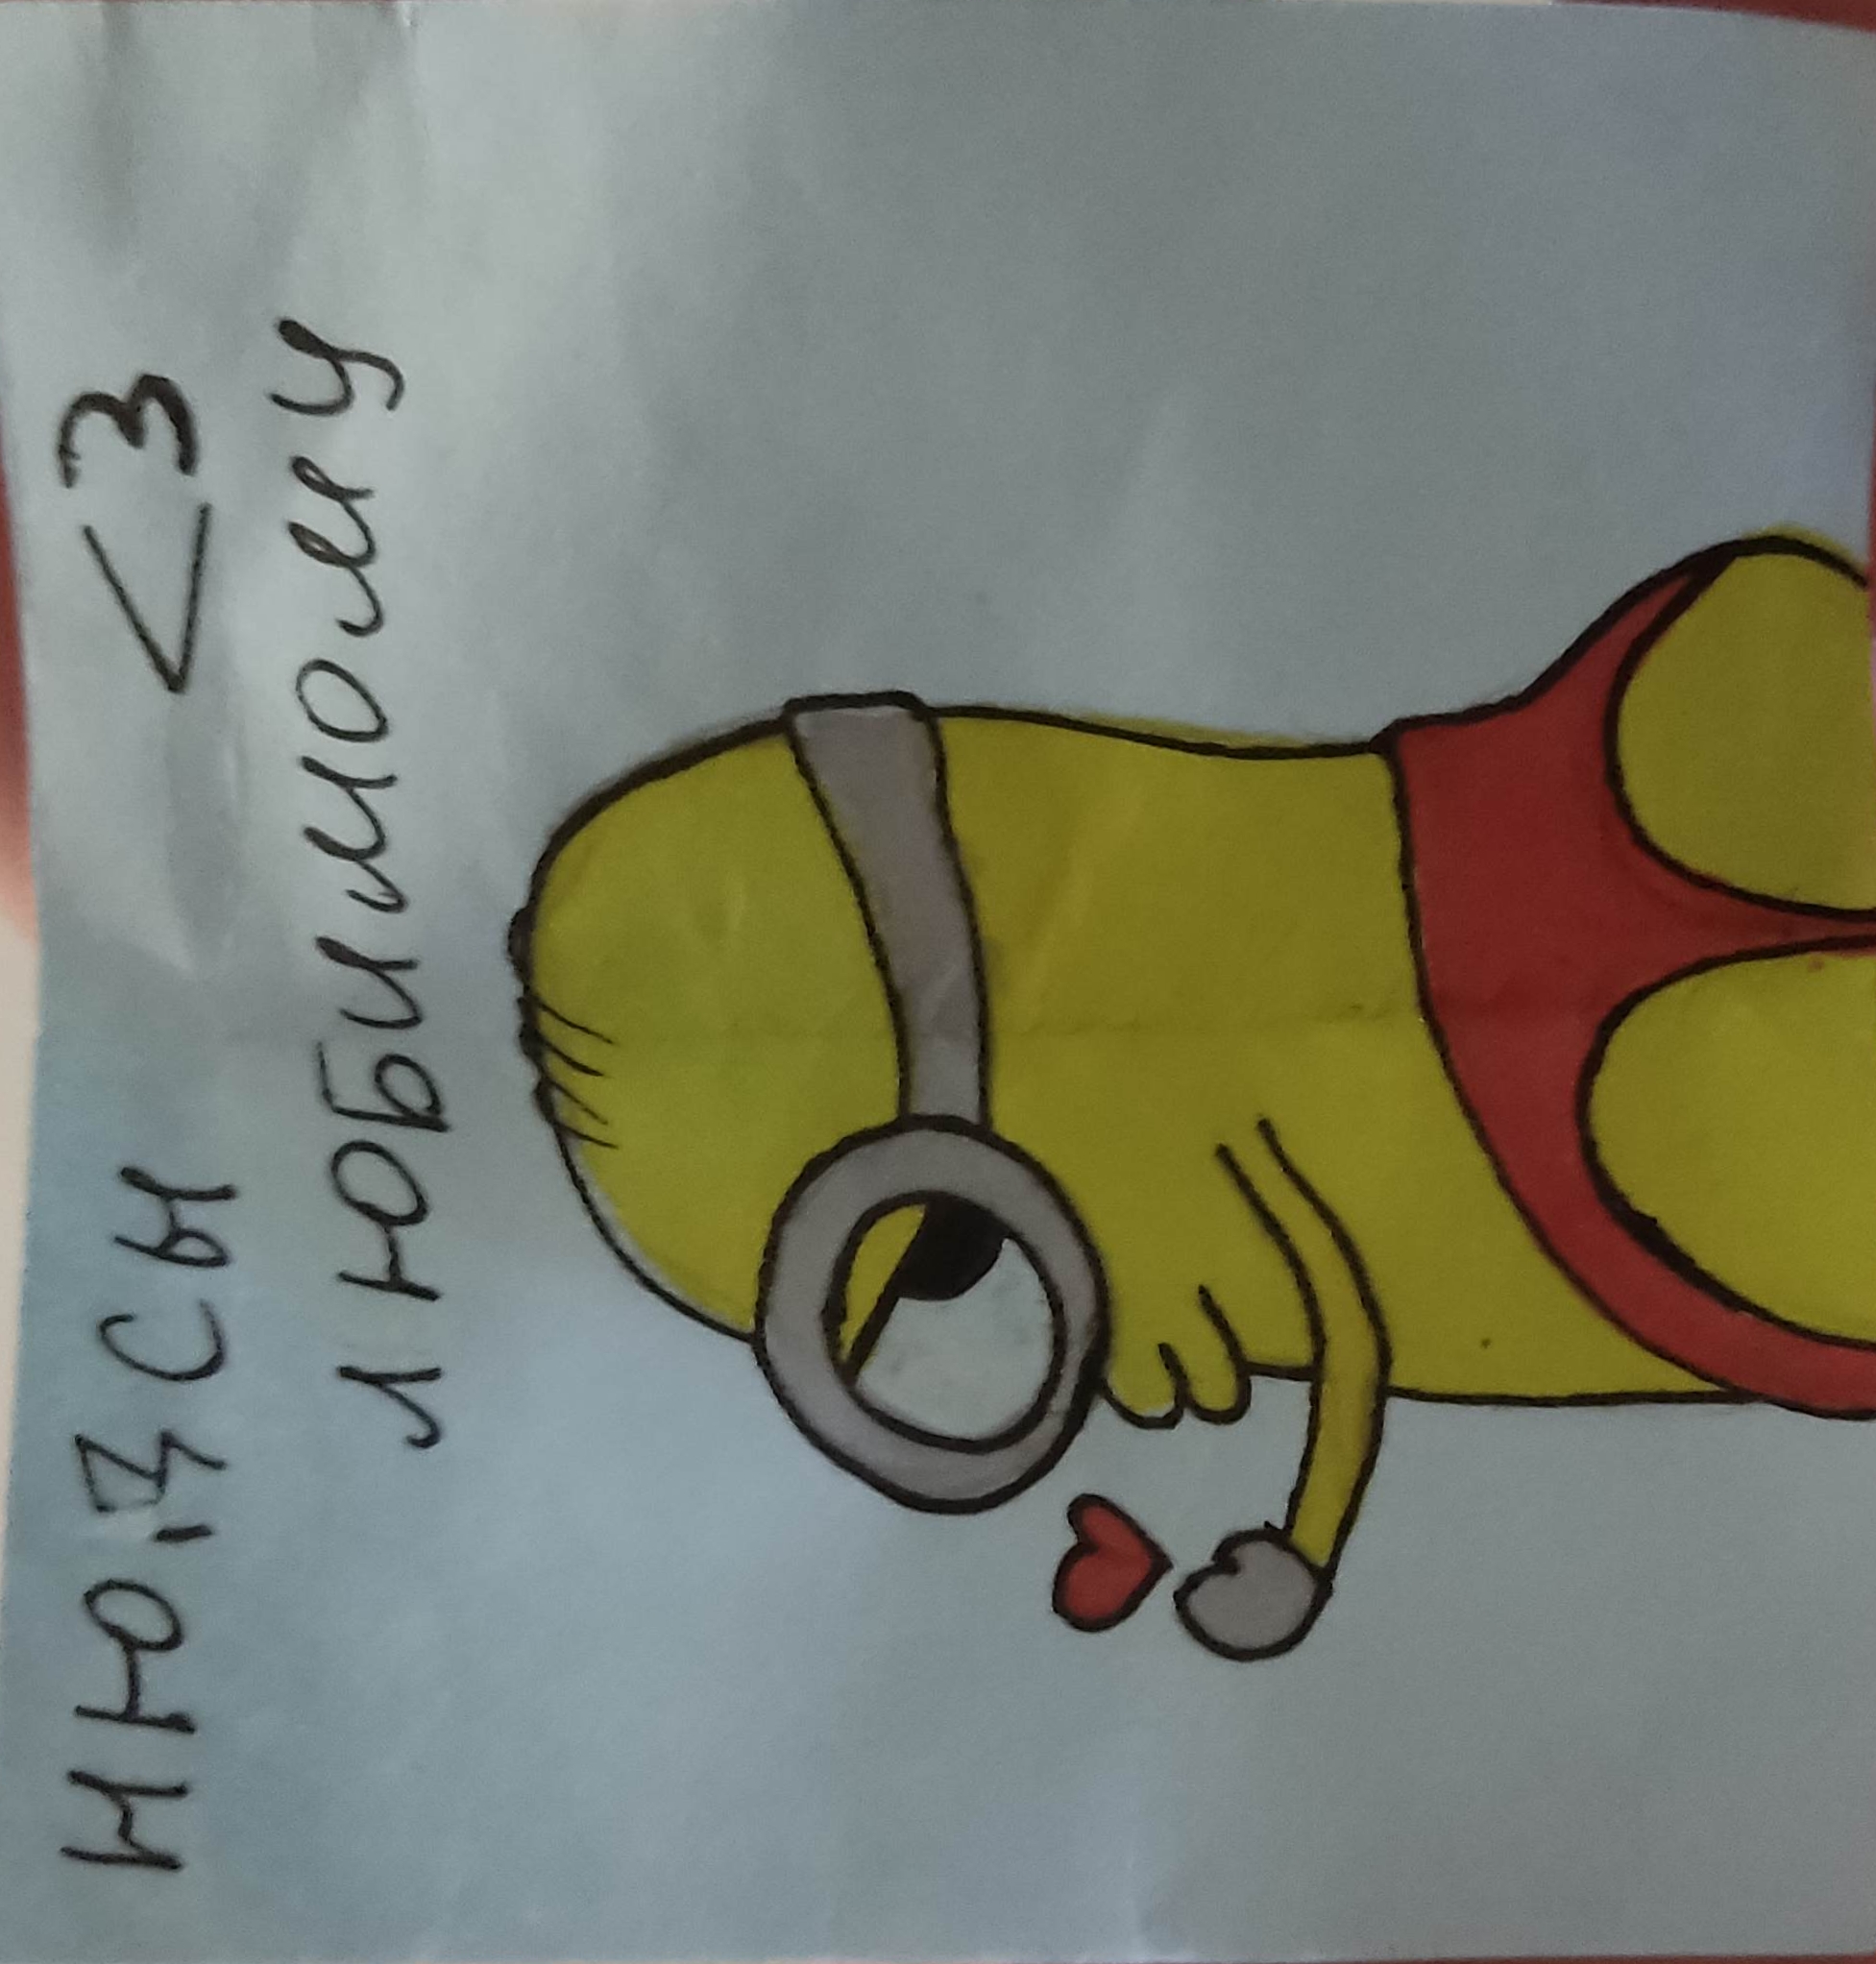 нюдсы <3
любимому